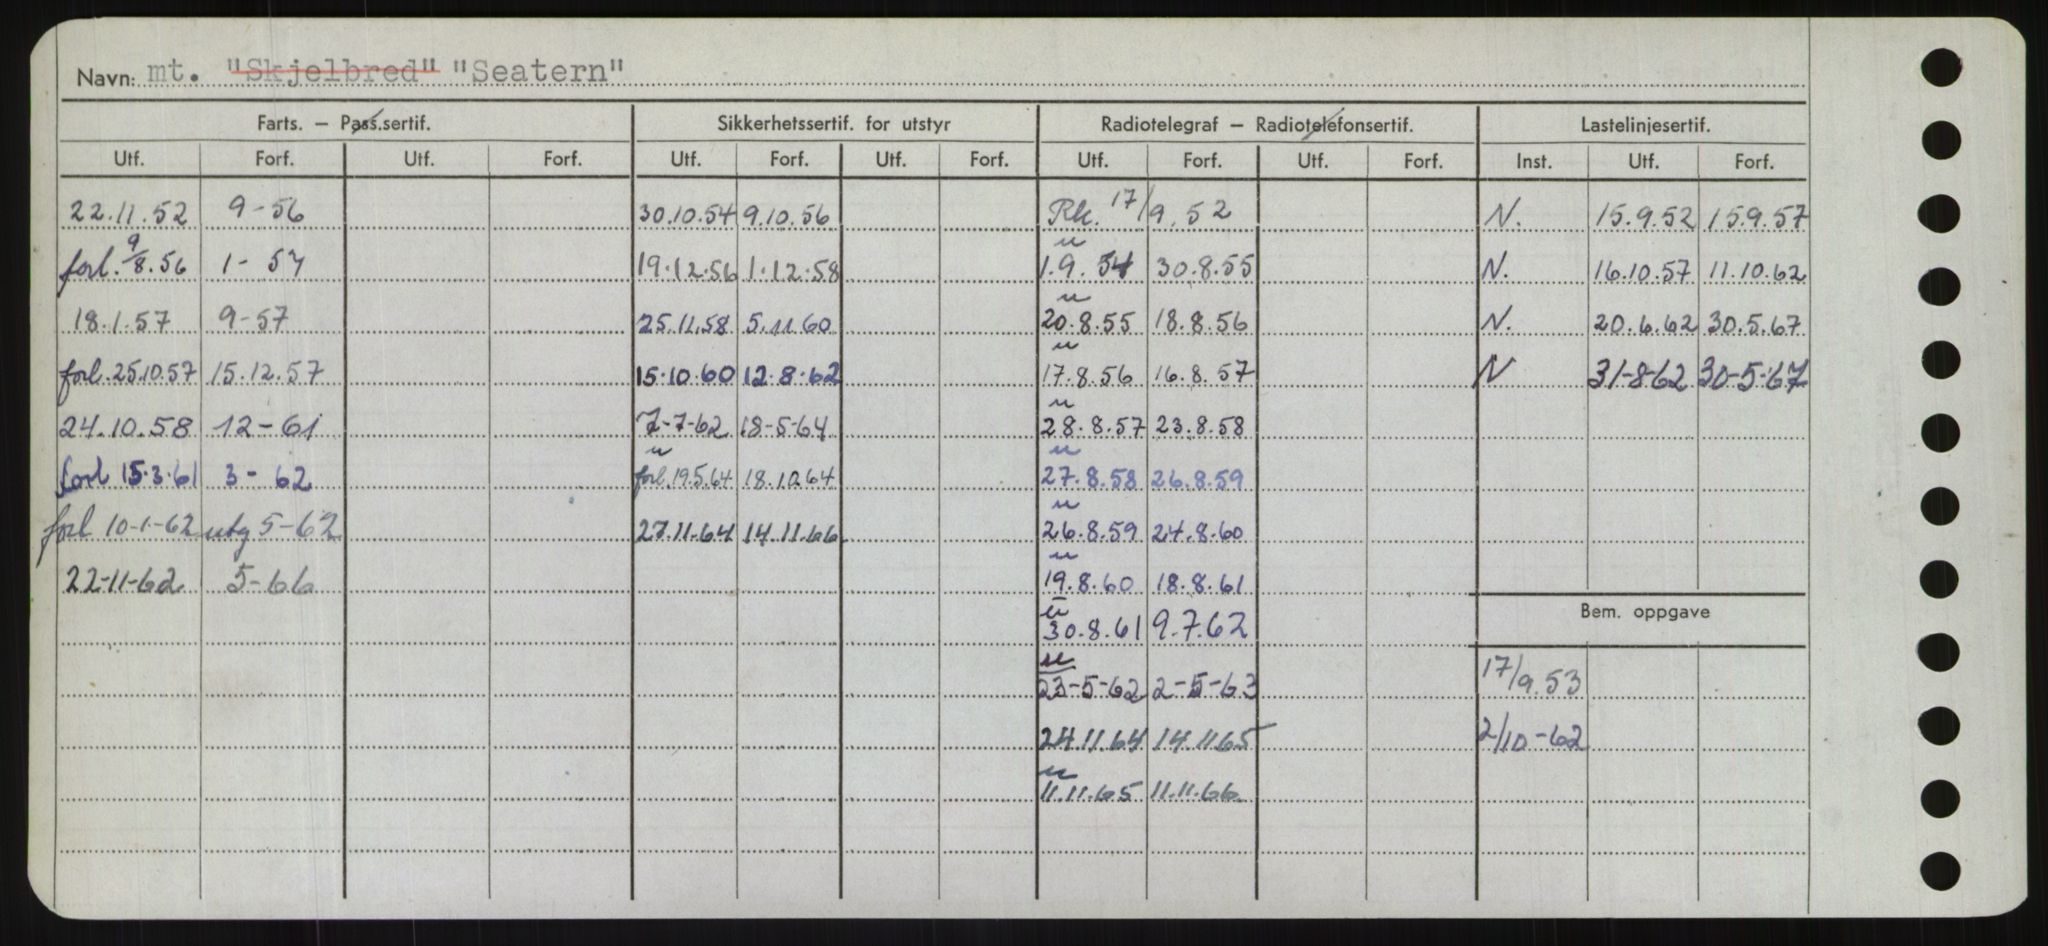 Navn: mt. "Skjelbred" "Seatern"
Farts. – Pass.sertif. Sikkerhetssertif. for utstyr Radiotelegraf – Radiotelefonsertif. Lastelinjesertif.
Utf. Forf. Utf. Forf. Utf. Forf. Utf. Forf. Utf. Forf. Utf. Forf. Inst. Utf. Forf.
22.11.52 9-56 30.10.54 9.10.56 Rk. 17/9.52 N. 15.9.52 15.9.57
forl. 9/8.56 1-57 19.12.56 1.12.58 u 1.9.54 30.8.55 N. 16.10.57 11.10.62
18.1.57 9-57 25.11.58 5.11.60 u 20.8.55 18.8.56 N. 20.6.62 30.5.67
forl. 25.10.57 15.12.57 15.10.60 12.8.62 u 17.8.56 16.8.57 N 31-8-62 30-5-67
24.10.58 12-61 7-7-62 18-5-64 u 28.8.57 23.8.58
forl 15.3.61 3-62 u forl. 19.5.64 18.10.64 u 27.8.58 26.8.59
forl 10-1-62 utg 5-62 27.11.64 14.11.66 u 26.8.59 24.8.60
22-11-62 5-66 u 19.8.60 18.8.61
Bem. oppgave
u 30.8.61 9.7.62
u 23-5-62 2-5-63 17/9.53
24.11.64 14.11.65 2/10-62
u 11.11.65 11.11.66